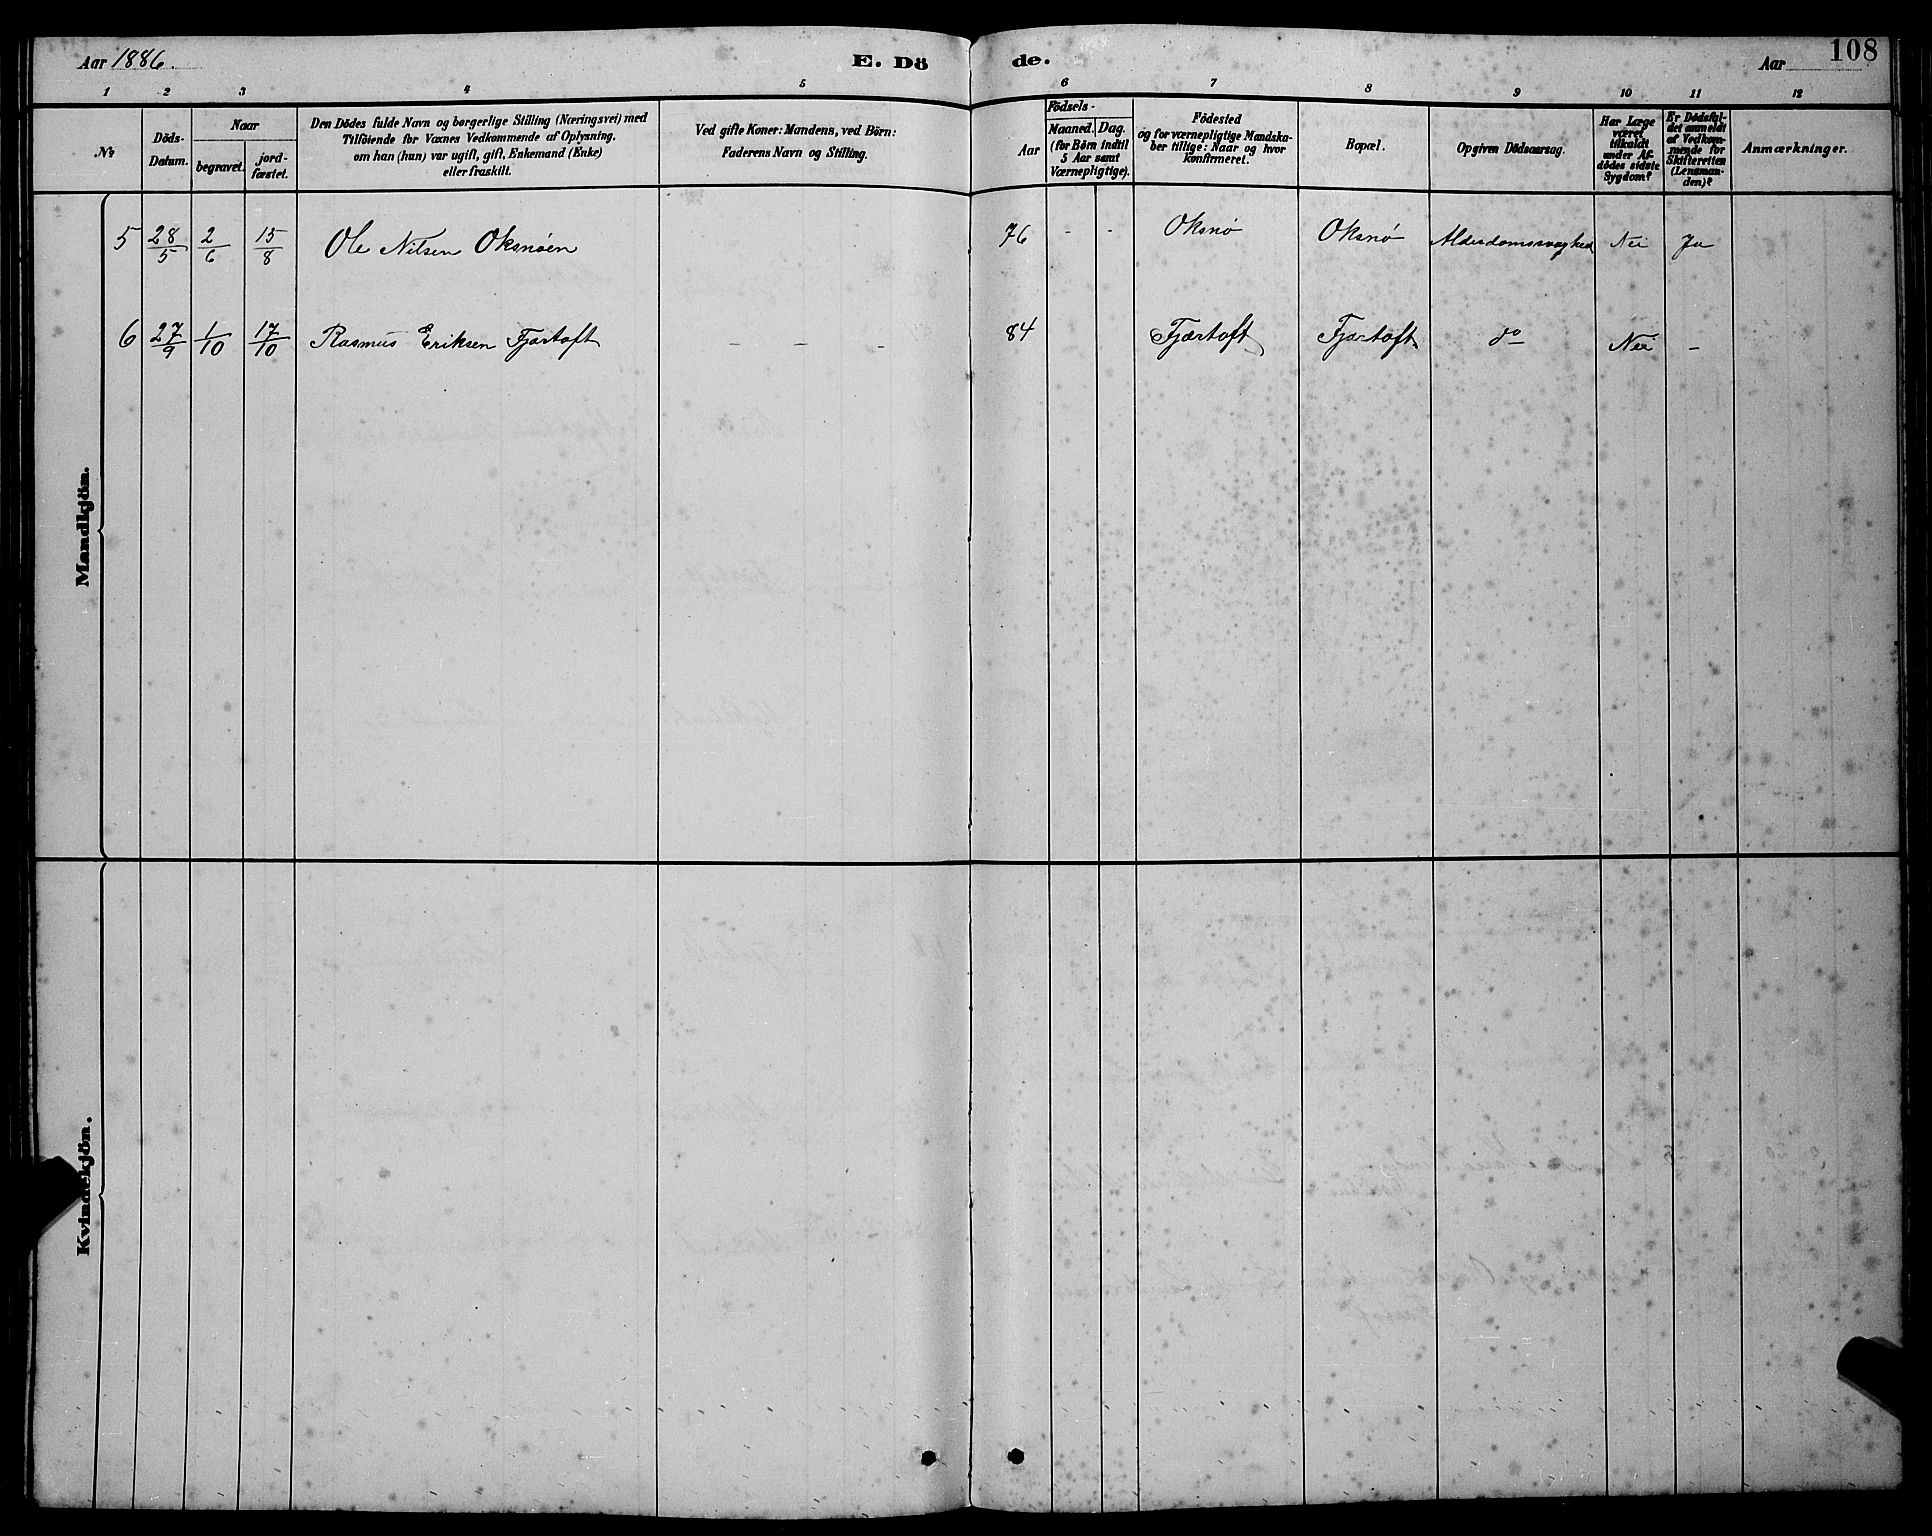 Aar 1886.
E. Dö
de.
Aar
108
1 2 3 4 5 6 7 8 9 10 11 12
No
Döds-
Datum.
Naar
begravet.
jord-
fæstet.
Den Dödes fulde Navn og borgerlige Stilling (Næringsvei) med
Tilföiende for Voxnes Vedkommende af Oplysning.
om han (hun) var ugift, gift, Enkemand (Enke)
eller fraskilt.
Ved gifte Koner: Mandens, ved Börn:
Faderens Navn og Stilling.
Aar
Födsels-
Maaned. Dag.
(for Börn indtil
5 Aar samt
Værnepligtige).
Födested
og for værnepligtige Mandska-
ber tillige: Naar og hvor
konfirmeret.
Bopæl.
Opgiven Dödsaarsag.
Har Læge
været
tilkaldt
under Af-
dödes sidste
Sygdom?
Er Dödsfal-
det anmeldt
af Vedkom-
mende for
Skifteretten
(Lensman-
den)?
Anmærkninger.
Mandkjön.
5 28/5 2/6 15/8 Ole Nilsen Oksnøen 76 - - Oksnø Oksnø Alderdomssvaghed Nei Ja
6 27/9 1/10 17/10 Rasmus Eriksen Fjærtoft - - - 84 Fjærtoft Fjærtoft do Nei -
Kvindekjön.